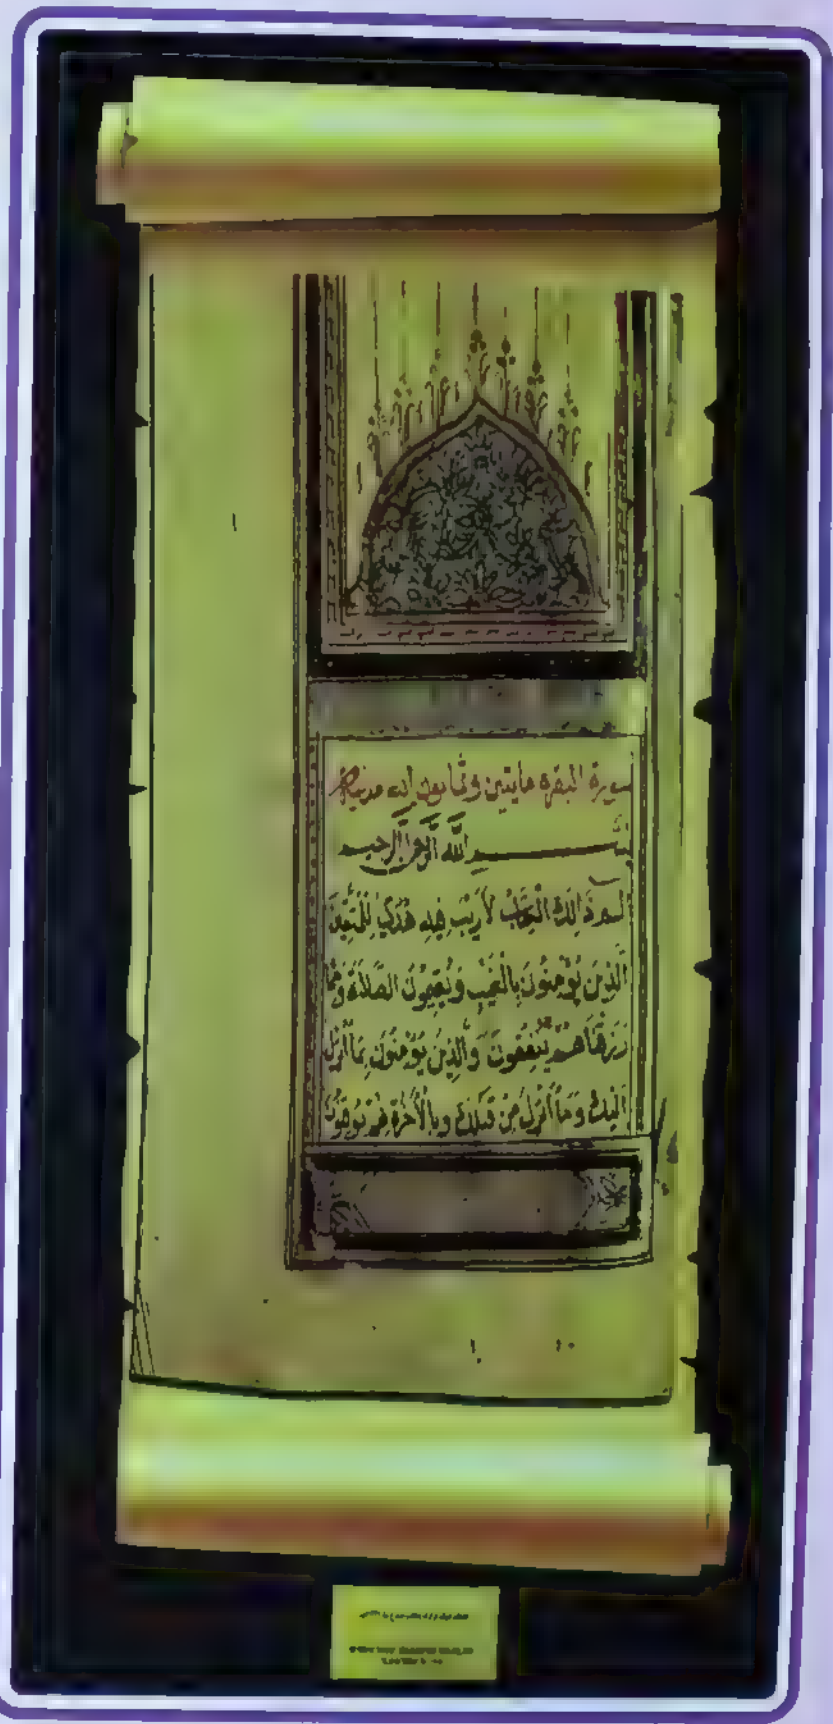 سورة البقرة مايتين وثمانون آيه مدنية
بسم الله الرحمن الرحيم
الم ذَالِكَ الْكِتَابُ لَا رَيْبَ فِيهِ هُدًى لِلْمُتَّقِينَ
الَّذِينَ يُؤْمِنُونَ بِالْغَيْبِ وَيُقِيمُونَ الصَّلَاةَ وَمِمَّا
رَزَقْنَاهُمْ يُنْفِقُونَ وَالَّذِينَ يُؤْمِنُونَ بِمَا أُنْزِلَ
إِلَيْكَ وَمَا أُنْزِلَ مِنْ قَبْلِكَ وَبِالْآخِرَةِ هُمْ يُوقِنُونَ